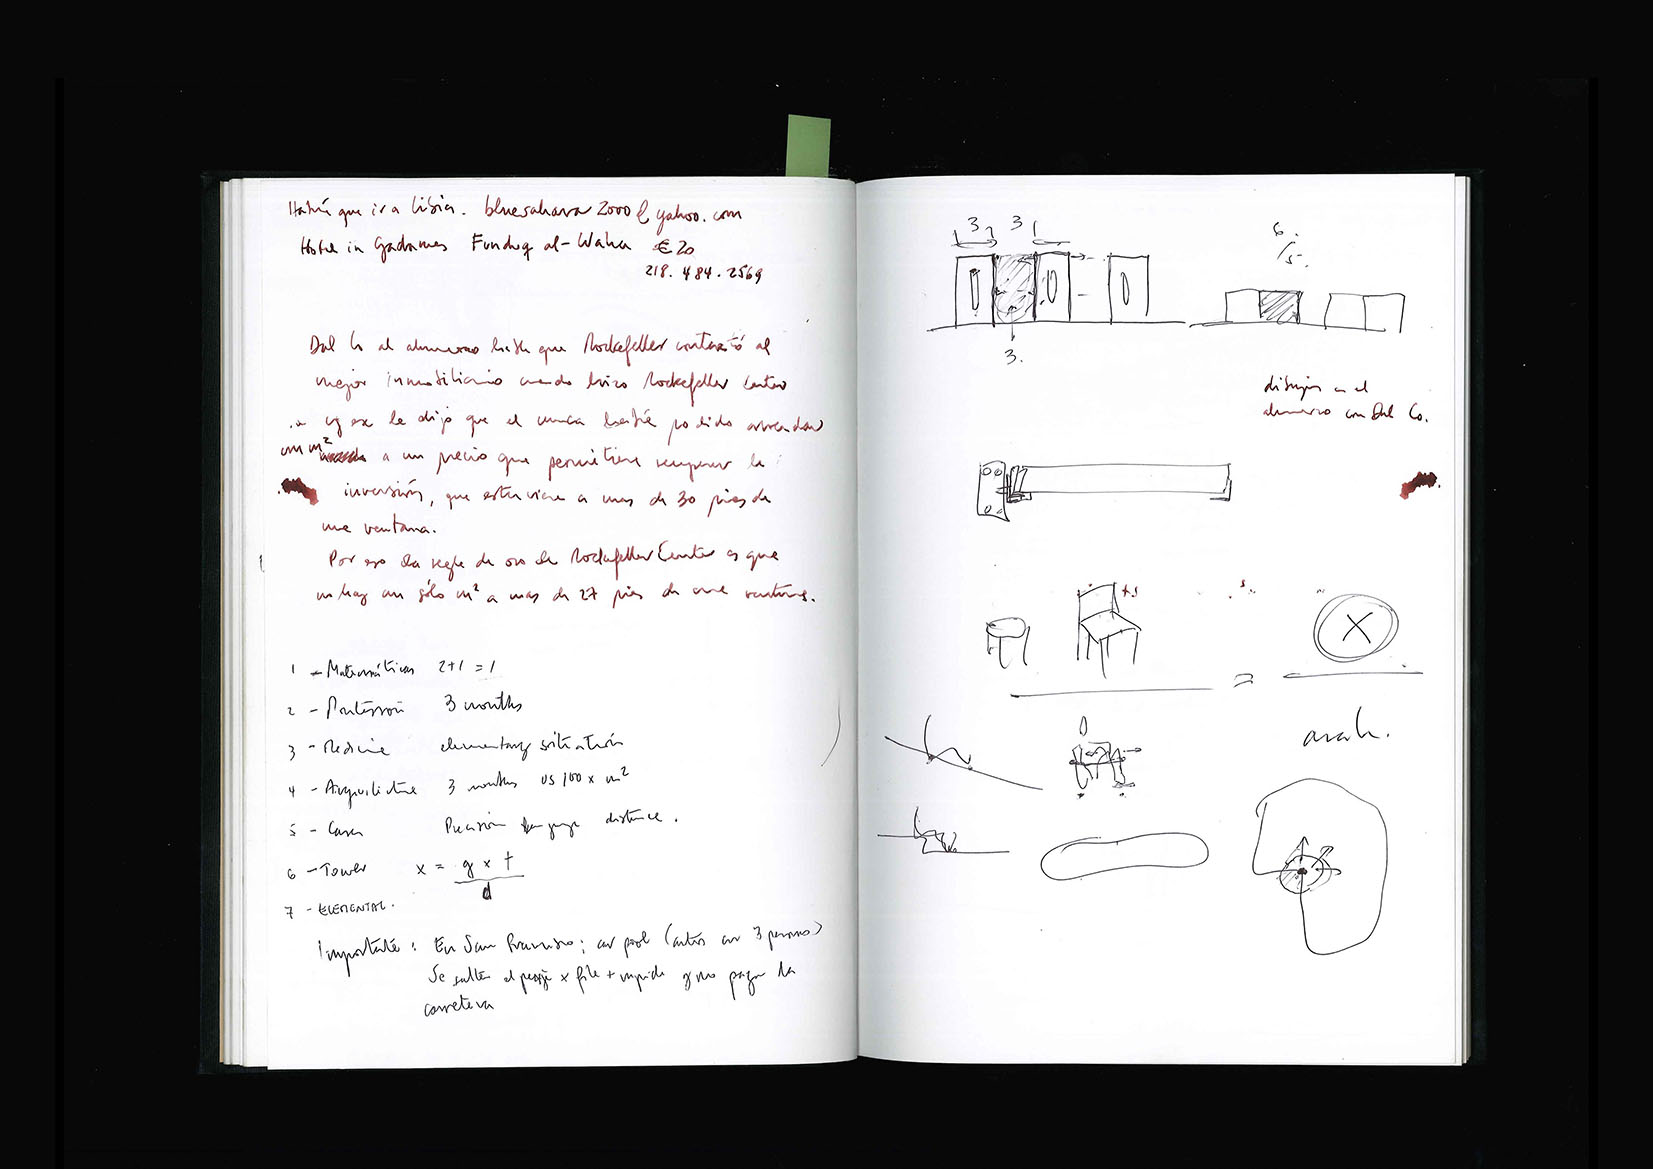 Habrá que ir a Libia. bluesahara2000@yahoo.com
Hostel in Gadames Funduq al-Waha €20
218.484.2569
Dal Co al almuerzo que Rockefeller contrató al
mejor inmobiliario cuando hizo Rockefeller Center
y ese le dijo que el nunca podido arrendar
un m² a un precio que permitiera recuperar la
inversión, que estuviera a mas de 30 pies de
una ventana.
Por eso la regla de oro de Rockefeller Center es que
no hay un sólo m² a mas de 27 pies de una ventana.
1 - Matemáticas 2+1=1
2 - 3 months
3 - Medicine elementary
4 - 3 months US 100 x m²
5 - Casa Precisión distance.
6 - Tower x = g x t
d
7 - ELEMENTAL.
Importante: En San Francisco; car pool (autos con 3 personas)
Se saltan el peaje x fila + rapida y no pagan la
carretera
3 3
6.
/5.
3.
dibujos en el
almuerzo con Dal Co.
+
X
=